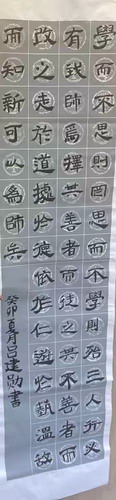 學而不思則罔思而不學則殆三人行必
有我師焉擇其善者而從之其不善者而
改之志於道據於德依於仁遊於藝溫故
而知新可以為師矣
癸卯夏月呂建勛書